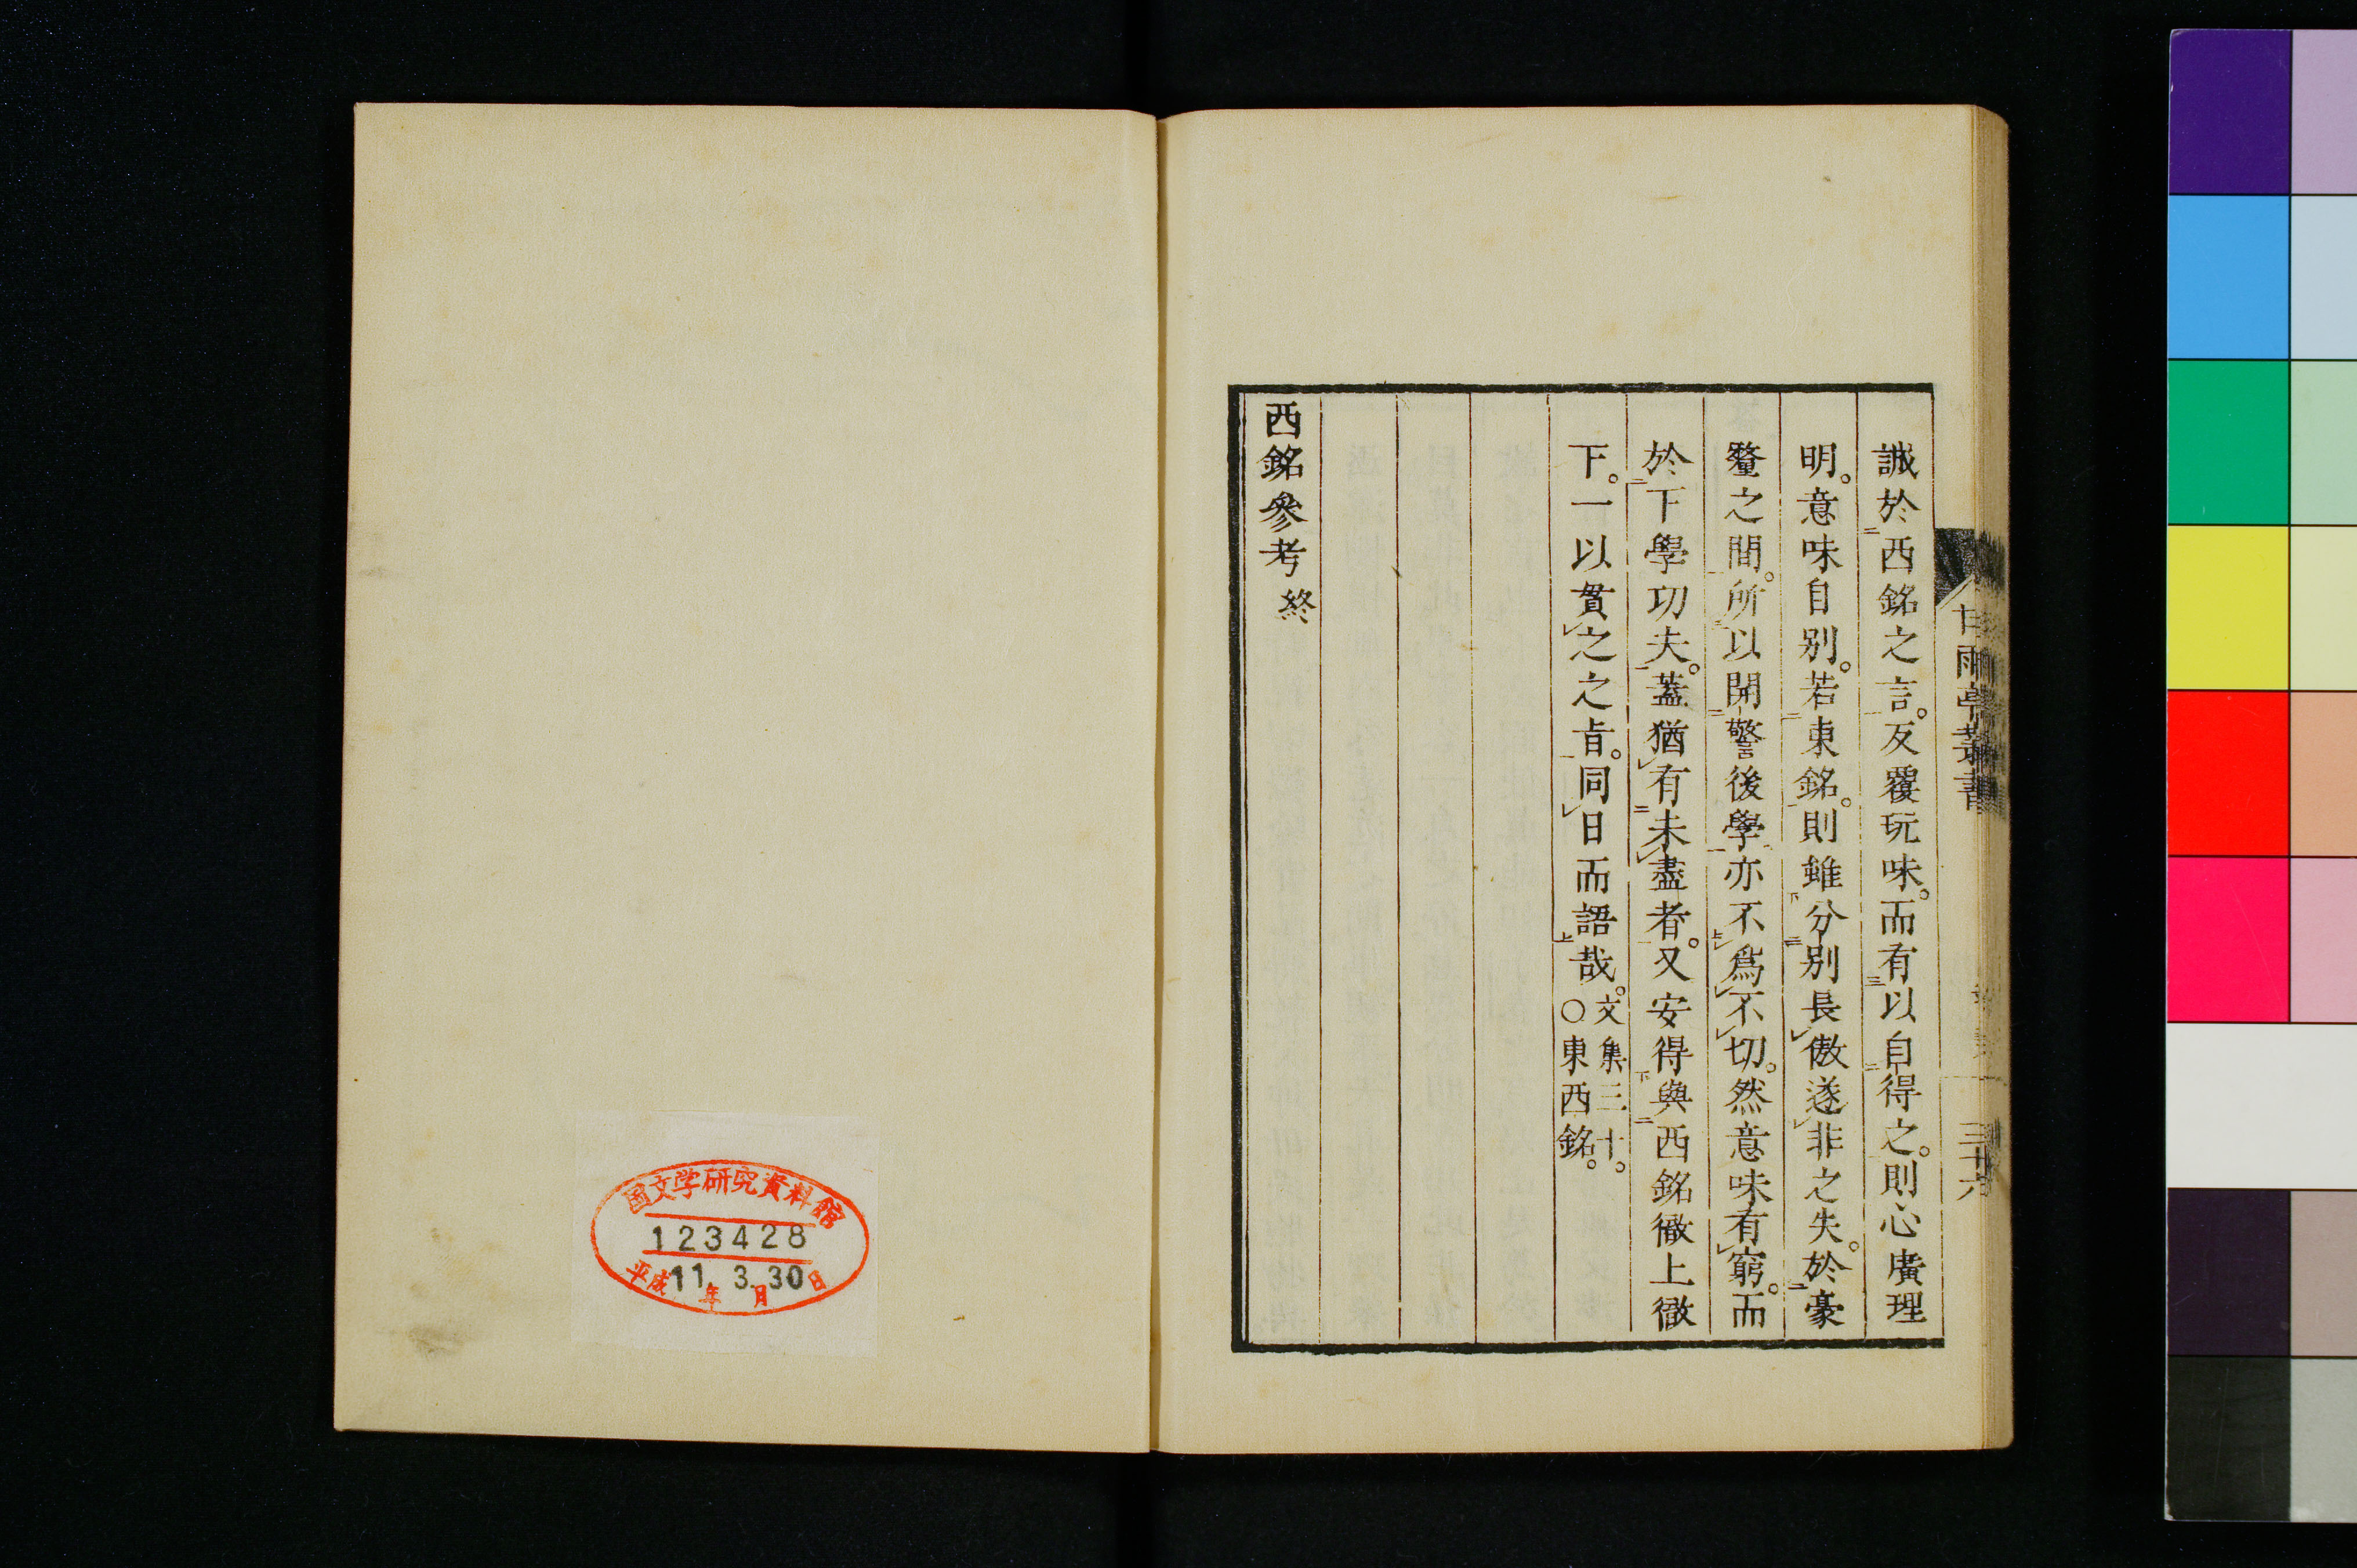 誠於西銘之言。反覆玩味。而有以自得之。則心廣理
明。意味自別。若東銘。則雖分別長傲遂非之失。於豪
釐之間。所以開警後學。亦不爲不切。然意味有窮。而
於下學功夫。蓋猶有未盡者。又安得與西銘徹上徹
下。一以貫之之旨。同日而語哉。
文集三十。
○東西銘。
西銘參考終
甘雨亭叢書
三十六
国文学研究資料館
123428
平成11年3月30日